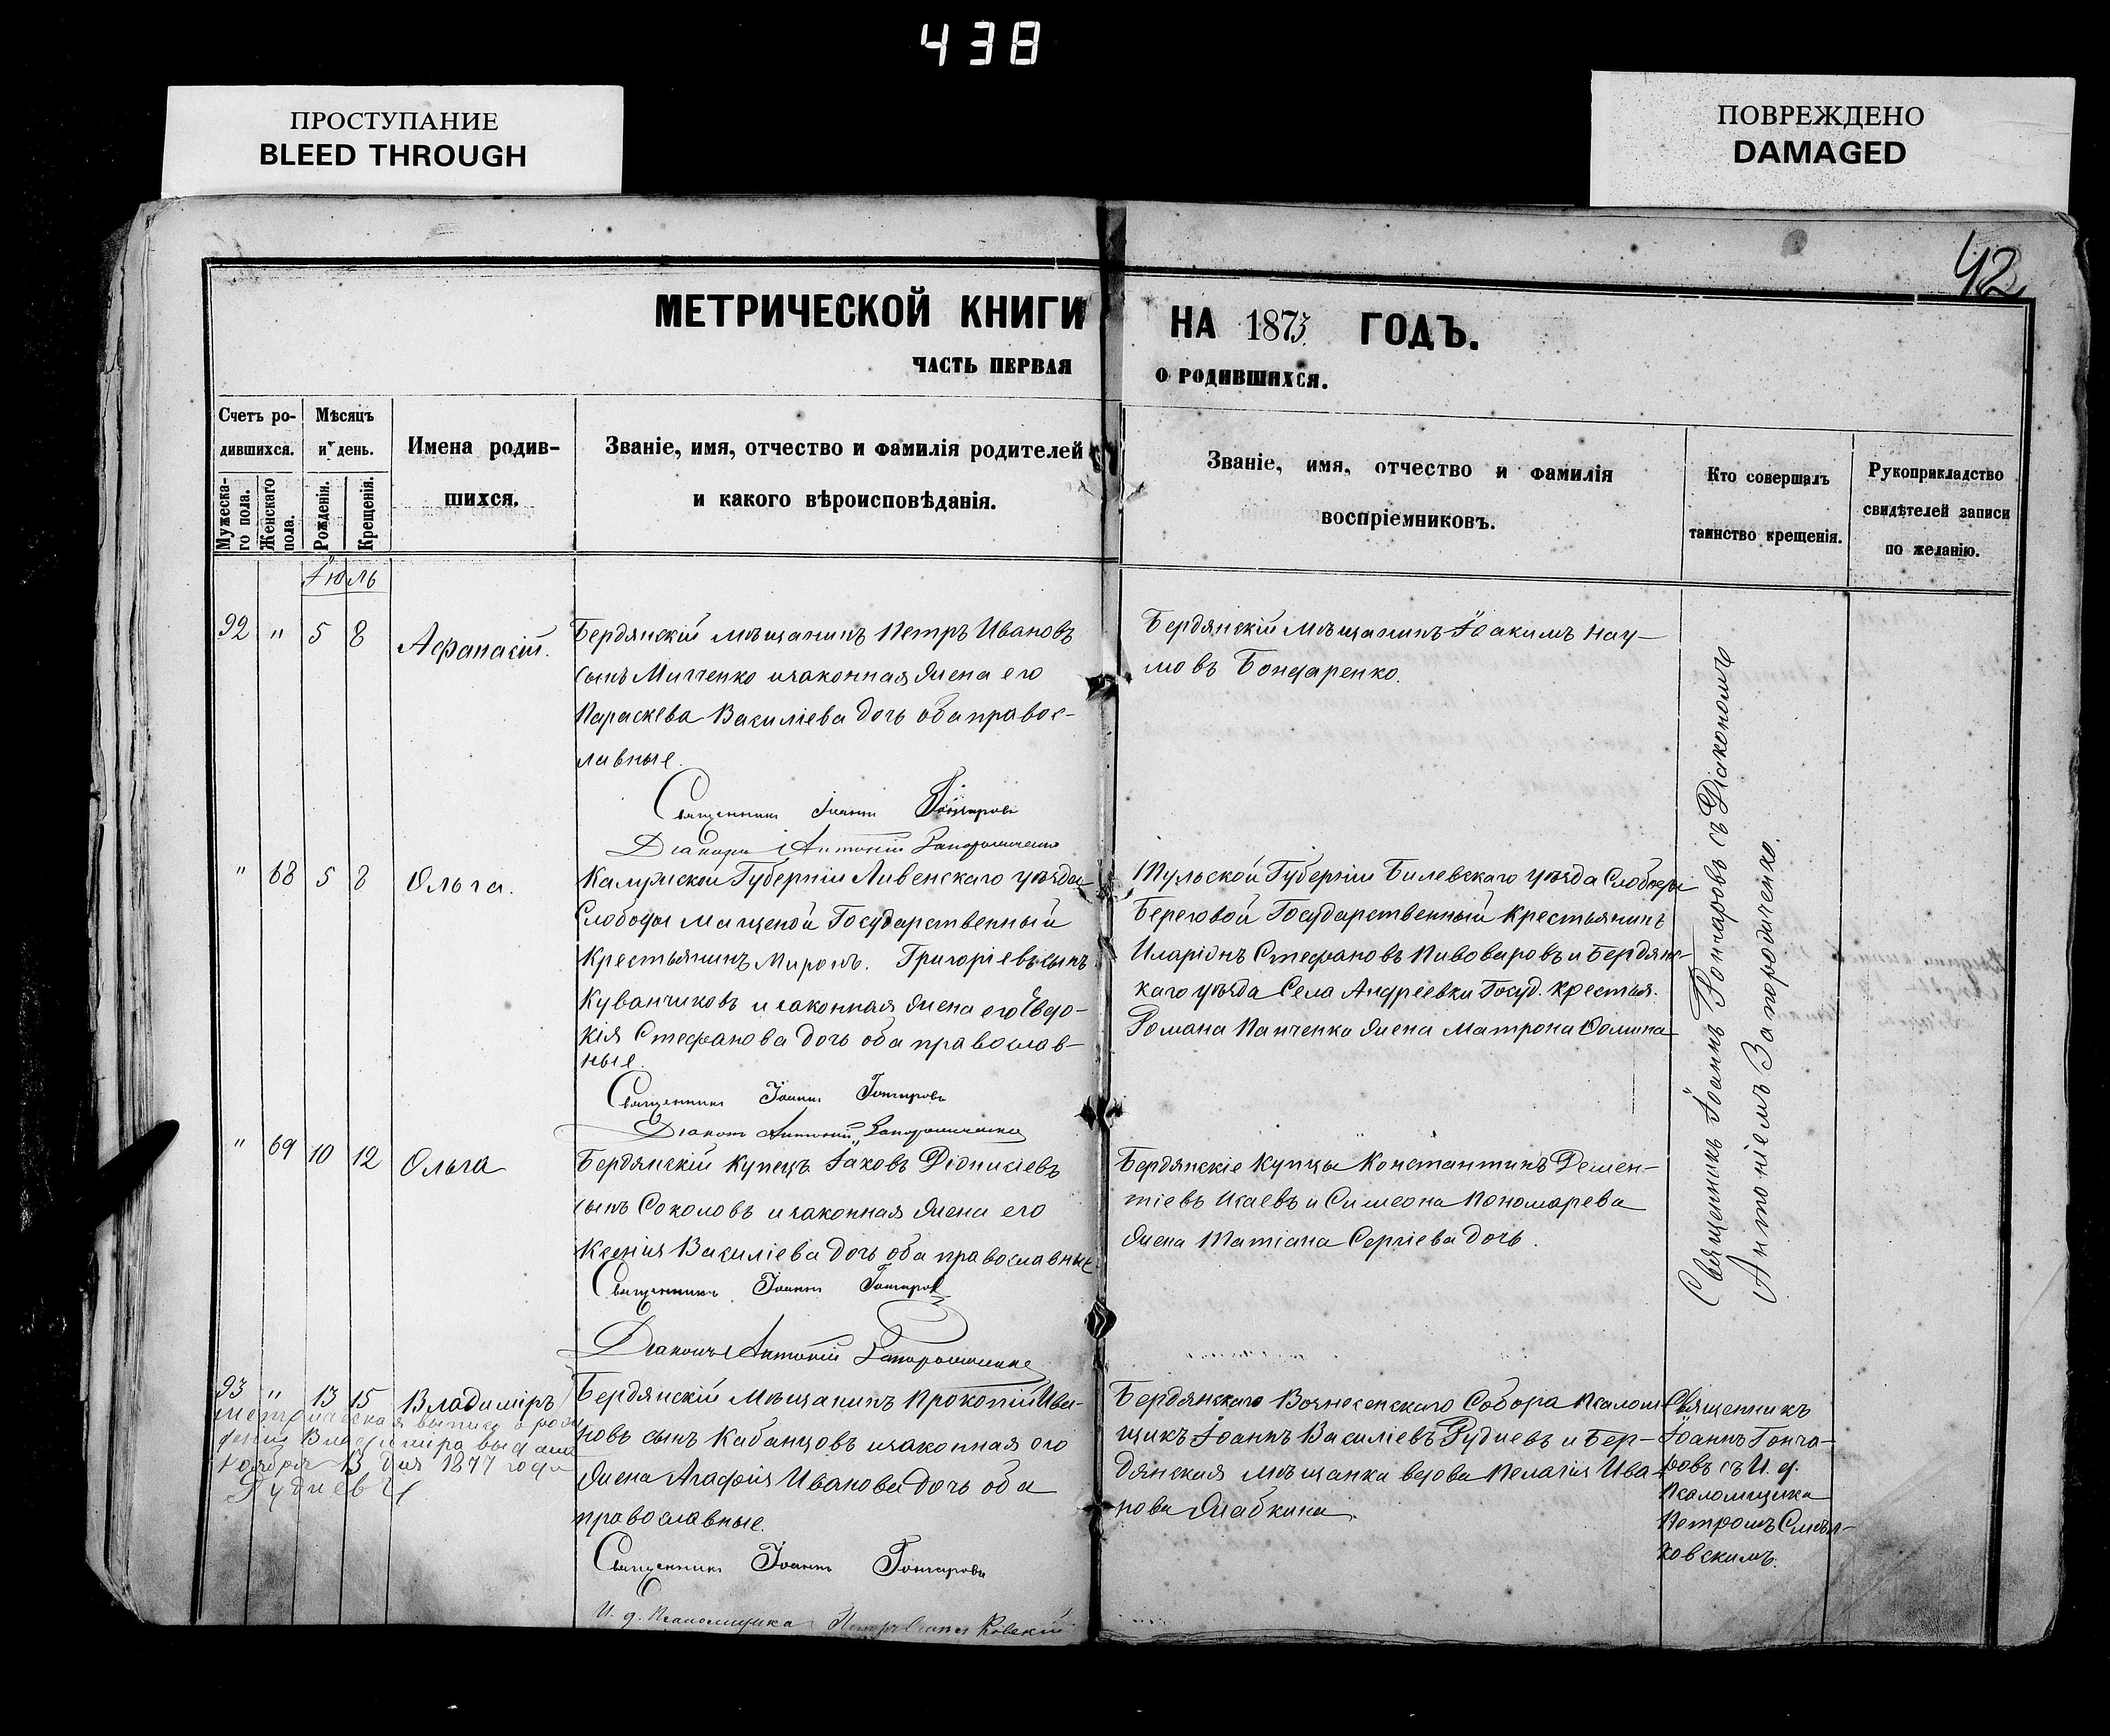 438
ПРОСТУПАНИЕ
BLEED THROUGH
ПОВРЕЖДЕНО
DAMAGED
42
МЕТРИЧЕСКОЙ КНИГИ НА 1873 ГОДЪ.
ЧАСТЬ ПЕРВАЯ О РОДИВШИХСЯ.
Счетъ ро-
дившихся.
Мужеска-
го пола.
Женскаго
пола.
Мѣсяцъ
и день.
Рожденія.
Крещенія.
Имена родив-
шихся.
Званіе, имя, отчество и фамилія родителей
и какого вѣроисповѣданія.
Званіе, имя, отчество и фамилія
воспріемниковъ.
Кто совершалъ
таинство крещенія.
Рукоприкладство
свидѣтелей записи
по желанію.
Іюль
92 " 5 8 Афанасій.
Бердянскій мѣщанинъ Петръ Ивановъ
сынъ и законная жена его
Параскева Василіева дочь оба правос-
лавные.
Священникъ Іоаннъ Гончаровъ
Діаконъ Антоній
Бердянскій мѣщанинъ Іоакимъ Нау-
мовъ Бондаренко.
" 68 5 8 Ольга.
Губерніи Ливенскаго уѣзда
Слободы Государственный
Крестьянинъ Миронъ Григоріевъ сынъ
Куванчиковъ и законная жена его Евдо-
кія Стефанова дочь оба православ-
ные.
Священникъ Іоаннъ Гончаровъ
Діаконъ Антоній
Тульской Губерніи Билевскаго уѣзда Слободы
Береговой Государственный Крестьянинъ
Иларіонъ Стефановъ Пивоваровъ и Бердянс-
каго уѣзда Села Андреевки Госуд. крестья.
Романа Панченка жена Матрона Фомина
" 69 10 12 Ольга
Бердянскій купецъ Іаковъ Діонисіевъ
сынъ Соколовъ и законная жена его
Ксенія Василіева дочь оба православные
Священникъ Іоаннъ Гончаровъ
Діаконъ Антоній
Бердянскіе купцы Константинъ Демен-
тіевъ Исаевъ и Симеона Пономарева
жена Татіана Сергіева дочь.
Священникъ Іоаннъ Гончаровъ съ Діакономъ
Антоніемъ
93 " 13 15 Владиміръ
Метрическая выпись о рож
деніи Владиміра выдана
Ноября 13 дня 1877 года
Рудневъ
Бердянскій мѣщанинъ Прокопій Ива-
новъ сынъ Кабанцовъ и законная его
жена Агафія Иванова дочь оба
православные.
Священникъ Іоаннъ Гончаровъ
И. д. Псаломщика Петръ
Бердянскаго Вознесенскаго Собора Псалом
щикъ Іоаннъ Василіевъ Рудневъ и Бер-
дянская мѣщанка вдова Пелагія Ива-
нова Жабкина.
Священникъ
Іоаннъ Гонча-
ровъ съ И. д.
Псаломщика
Петромъ